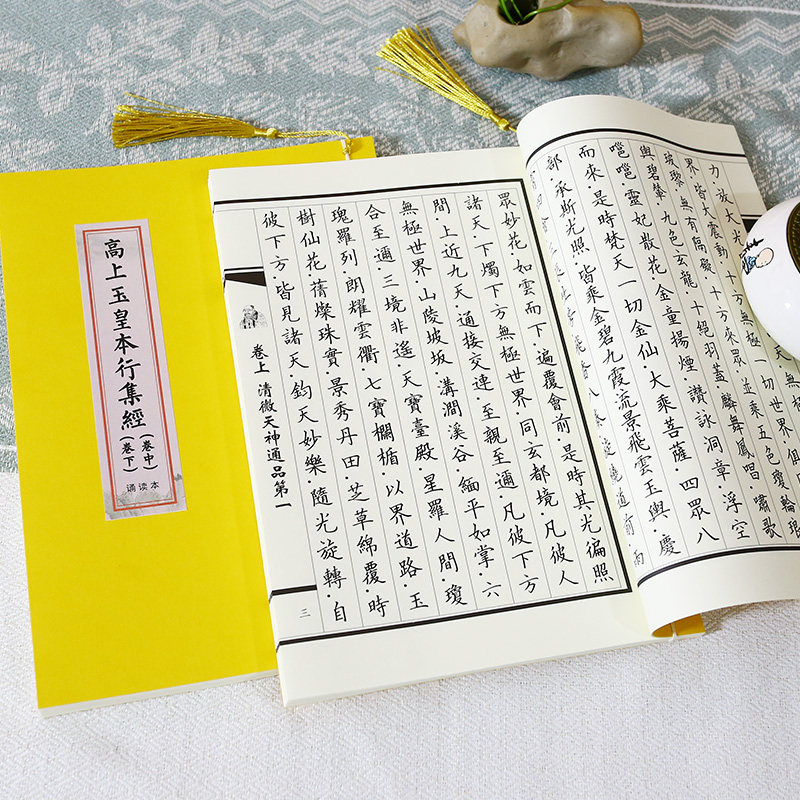 高上玉皇本行集經
(卷中)
(卷下)
诵读本
力放大光
界·皆大震動·十方
玻瓈·無有隔礙·十方來眾·並乘五色瓊輪·琅
輿碧輦·九色玄龍·十絕羽蓋·麟舞鳳唱·嘯歌
邕邕·靈妃散花·金童揚煙·讚詠洞章·浮空
而來·是時梵天·一切金仙·大乘菩薩·四眾八
部·承斯光照·皆乘金碧九霞流景飛雲玉輿·慶
眾妙花·如雲而下·遍覆會前·是時其光徧照
諸天·下燭下方無極世界·同玄都境·凡彼人
間·上近九天·通接交連·至親至邇·凡彼下方
無極世界·山陵坡坂·溝澗溪谷·緬平如掌·六
合至邇·三境非遙·天寶臺殿·星羅人間·瓊
瑰羅列·朗耀雲衢·七寶欄楯·以界道路·玉
樹仙花·蒨燦珠實·景秀丹田·芝草綿覆·時
彼下方·皆見諸天·鈞天妙樂·隨光旋轉·自
卷上 清微天神通品第一
三